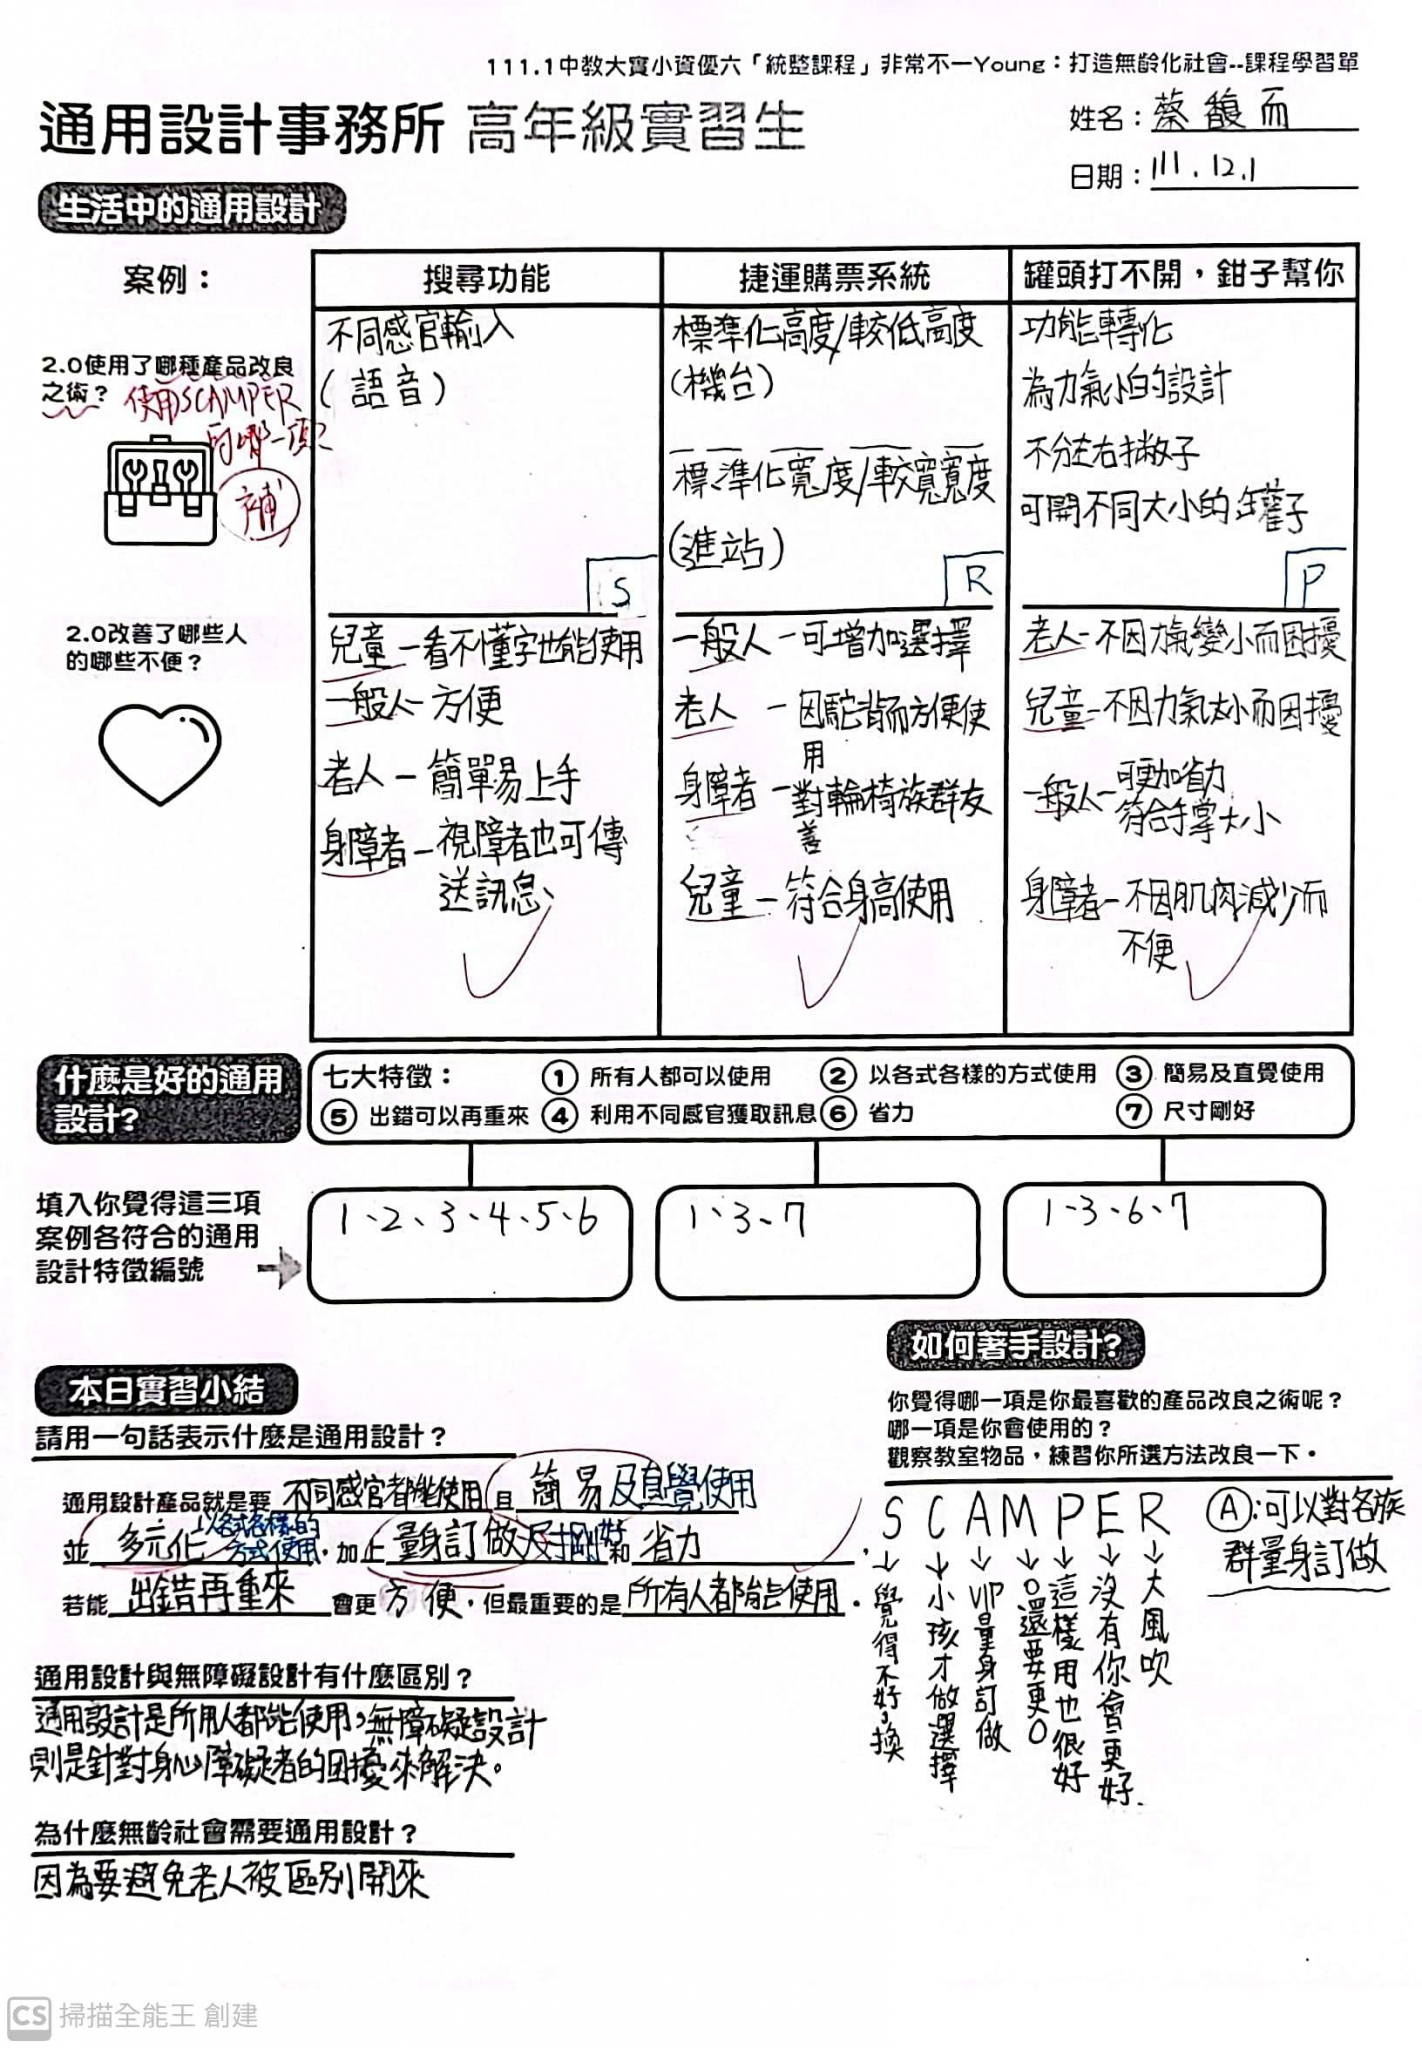 111.1中教大實小資優六「統整課程」非常不一Young：打造無齡化社會--課程學習單
通用設計事務所 高年級實習生
姓名：蔡馥而
日期：111.12.1
生活中的通用設計
案例：
搜尋功能
捷運購票系統
罐頭打不開，鉗子幫你
2.0使用了哪種產品改良
之術？
使用SCAMPER
的哪一項？
補
不同感官輸入
(語音)
S
標準化高度/較低高度
(機台)
標準化寬度/較寬寬度
(進站)
R
功能轉化
為力氣小的設計
不分左右撇子
可開不同大小的罐子
P
2.0改善了哪些人
的哪些不便？
兒童－看不懂字也能使用
一般人－方便
老人－簡單易上手
身障者－視障者也可傳
送訊息、
一般人－可增加選擇
老人－因駝背而方便使
用
身障者－對輪椅族群友
善
兒童－符合身高使用
老人－不因力氣變小而困擾
兒童－不因力氣太小而困擾
一般人－可更加省力
符合手掌大小
身障者－不因肌肉減少而
不便
什麼是好的通用
設計?
七大特徵：
① 所有人都可以使用
② 以各式各樣的方式使用
③ 簡易及直覺使用
⑤ 出錯可以再重來
④ 利用不同感官獲取訊息
⑥ 省力
⑦ 尺寸剛好
填入你覺得這三項
案例各符合的通用
設計特徵編號
1、2、3、4、5、6
1、3、7
1、3、6、7
本日實習小結
請用一句話表示什麼是通用設計？
通用設計產品就是要 不同感官者都能使用 且 簡易及直覺使用
並 多元化 以各式各樣的方式使用，加上 量身訂做尺寸剛好 和 省力，
若能 出錯再重來 會更 方便，但最重要的是 所有人都能使用。
通用設計與無障礙設計有什麼區別？
通用設計是所用人都能使用，無障礙設計
則是針對身心障礙者的困擾來解決。
為什麼無齡社會需要通用設計？
因為要避免老人被區別開來
如何著手設計?
你覺得哪一項是你最喜歡的產品改良之術呢？
哪一項是你會使用的？
觀察教室物品，練習你所選方法改良一下。
SCAMPER
覺得不好，換
小孩才做選擇
VIP量身訂做
O還要更O
這樣用也很好
沒有你會更好.
大風吹
Ⓐ:可以對各族
群量身訂做
CS 掃描全能王 創建